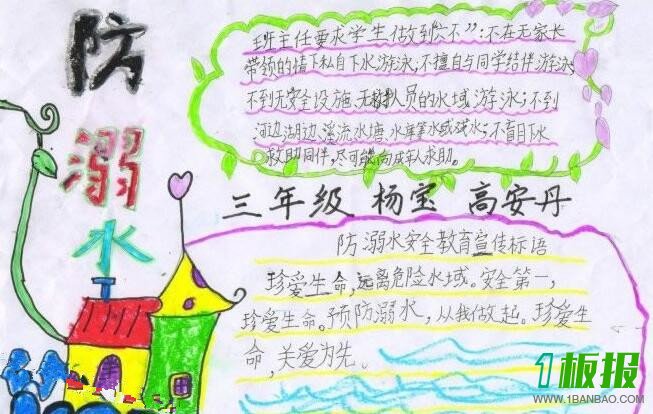 防溺水
班主任要求学生做到"六不":不在无家长
带领的情下私自下水游泳;不擅自与同学结伴游泳
不到无安全设施、无救护人员的水域游泳;不到
河边湖边、溪流水塘、水库等水或戏水;不盲目下水
救助同伴,尽可能向成人求助。
三年级 杨宝 高安丹
防溺水安全教育宣传标语
珍爱生命,远离危险水域。安全第一,
珍爱生命。预防溺水,从我做起。珍爱生
命,关爱为先。
1板报
WWW.1BANBAO.COM